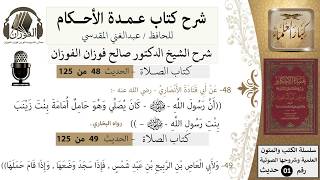 شرح كتاب عـمـدة الأحـكـام
للحافظ / عبدالغني المقدسي
شرح الشيخ الدكتور صالح فوزان الفوزان
كتاب الصلاة - الحديث 48 من 125
48- عَنْ أَبِي قَتَادَةَ الْأَنْصَارِيِّ - رضي الله عنه -:
((أَنَّ رَسُولَ اللَّهِ - ﷺ - كَانَ يُصَلِّي وَهُوَ حَامِلٌ أُمَامَةَ بِنْتَ زَيْنَبَ
بِنْتِ رَسُولِ اللَّهِ - ﷺ - )) رواه البخاري.
كتاب الصلاة - الحديث 49 من 125
49- وَلِأَبِي الْعَاصِ بْنِ الرَّبِيعِ بْنِ عَبْدِ شَمْسٍ، فَإِذَا سَجَدَ وَضَعَهَا، وَإِذَا قَامَ حَمَلَهَا))
الفوزان
سلسلة الكتب والمتون
العلمية وشروحها الصوتية
رقم 01 حديث